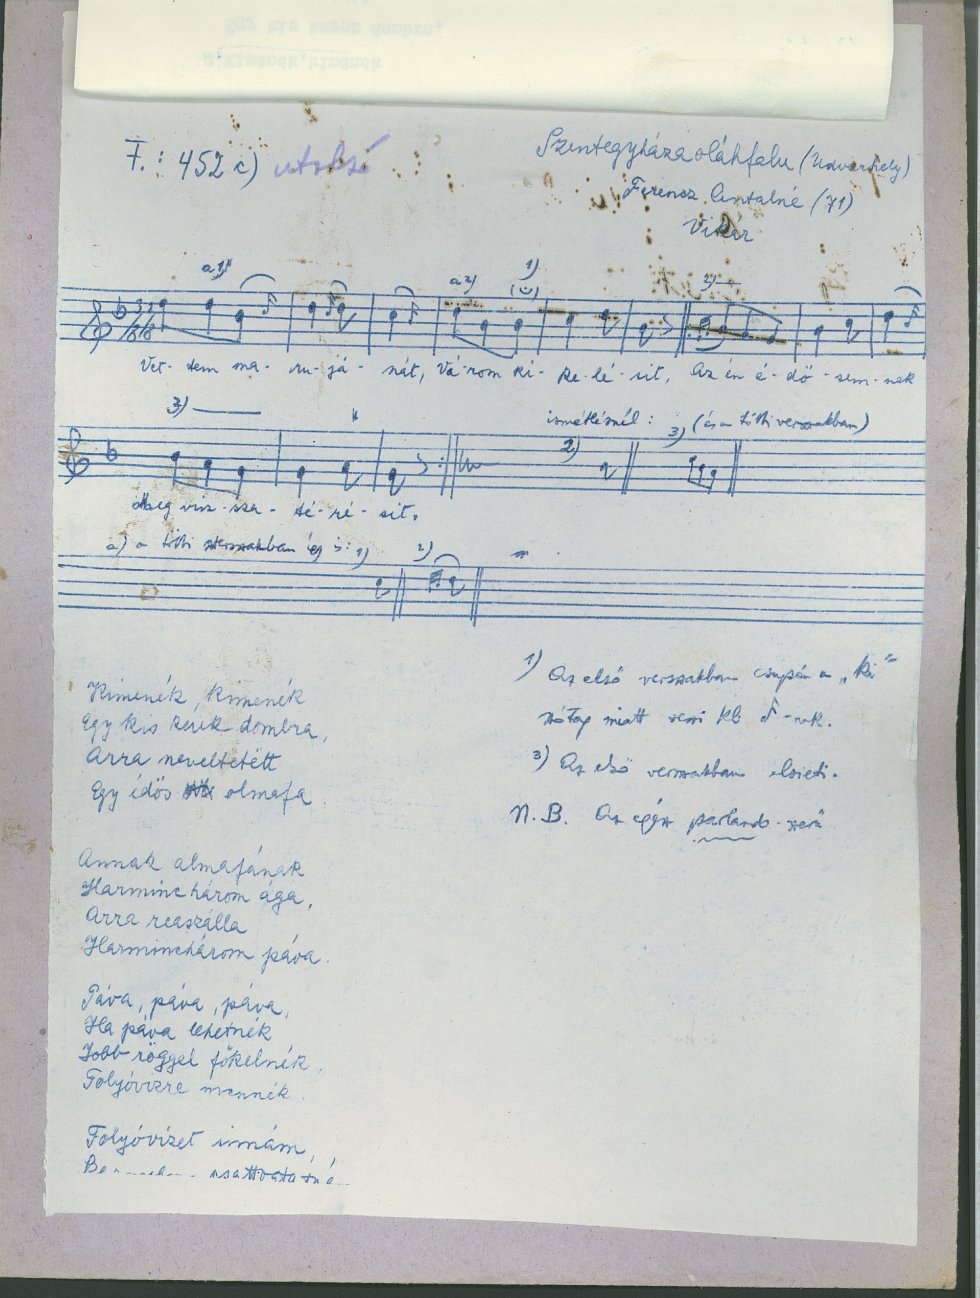 F.: 452 c) utolsó
Szentegyházasoláhfalu (Udvarhely)
Ferencz Antalné (71)
Vikár
a 1)
a 2)
1)
2)
Vet-tem ma-ru-já-nát, Vá-rom ki-ke-lé-sit, Az én é-dö-sem-nek
3)
ismétlésnél: 2) 3) (és a többi versszakban)
Meg visz-sza-té-ré-sit.
a) a többi versszakban így is: 1) 2)
Kimenék, kimenék
Egy kis kerek dombra,
Arra neveltetëtt
Egy idös almafa
Annak almafának
Harminchárom ága,
Arra reaszálla
Harminchárom páva.
Páva, páva, páva,
Ha páva lehetnék
Jobb röggel fökelnék,
Folyóvizre mennék.
Folyóvizet innám,
1) Az első versszakban csupán a „ki"
szótag miatt
3) Az első versszakban elsieti.
N.B. Az egész parlando-szerű